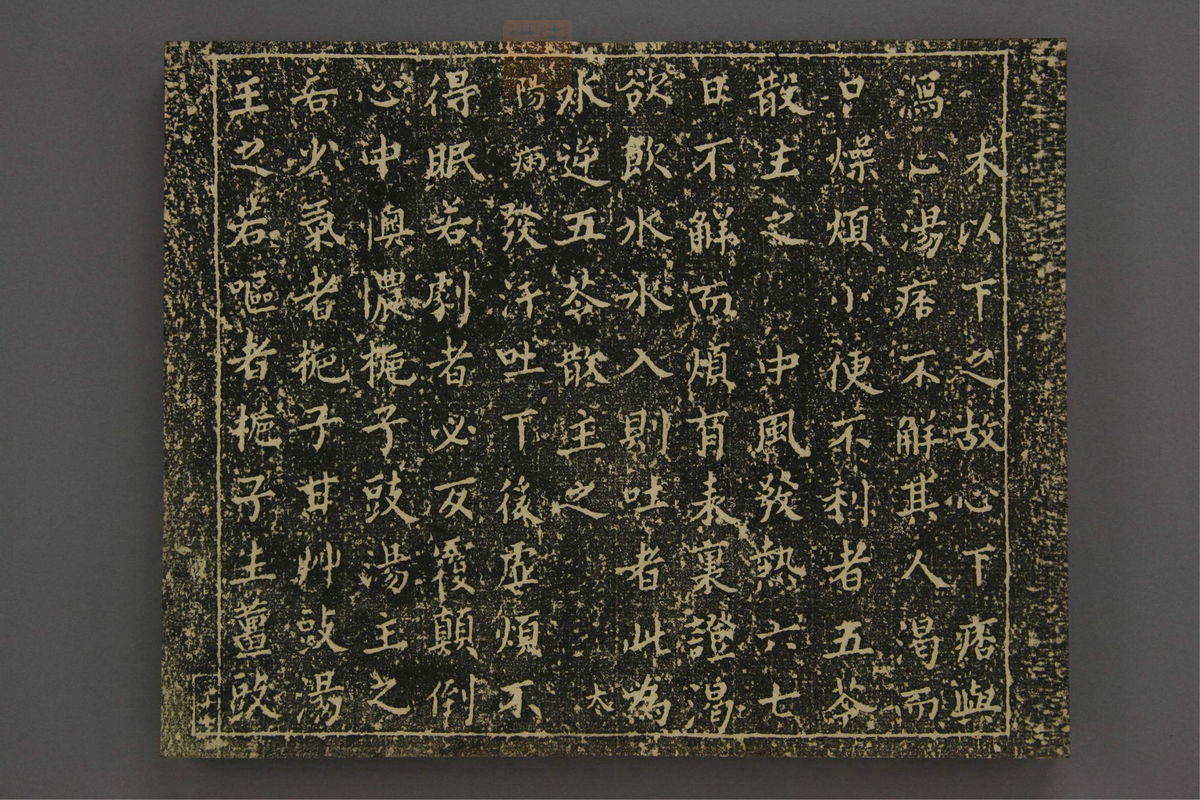 本以下之故心下痞與
瀉心湯痞不解其人渴而
口燥煩小便不利者五苓
散主之　中風發熱六七
日不解而煩有表裏證渴
欲飲水水入則吐者此為
水逆五苓散主之　太
陽病發汗吐下後虛煩不
得眠若劇者必反覆顛倒
心中懊憹梔子豉湯主之
若少氣者梔子甘艸豉湯
主之若嘔者梔子生薑豉